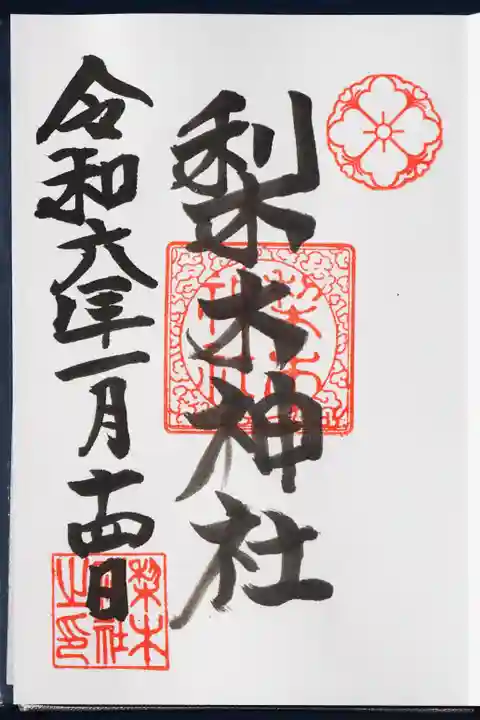 梨木神社
令和六年一月十四日
梨木神社之印